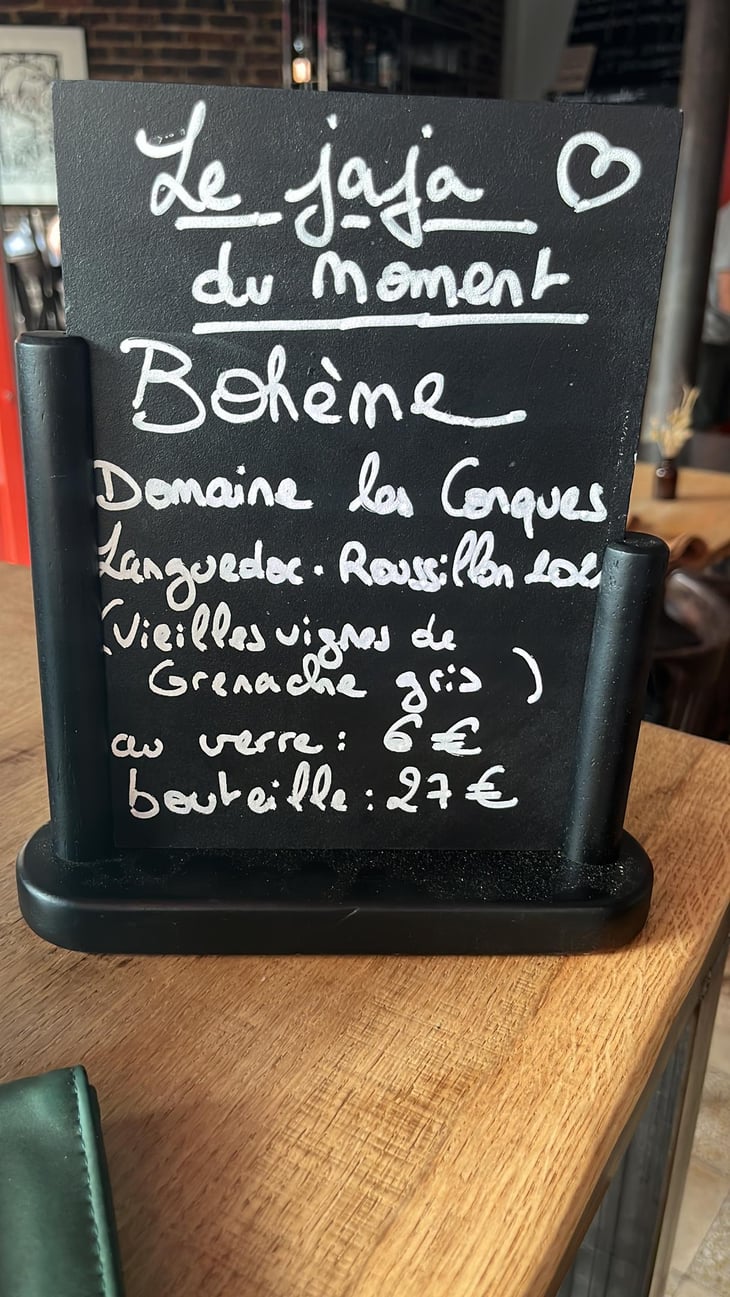 Le jaja
du moment
Bohème
Domaine las Conques
Languedoc. Roussillon
(Vieilles vignes de
Grenache gris)
au verre: 6 €
bouteille: 27 €